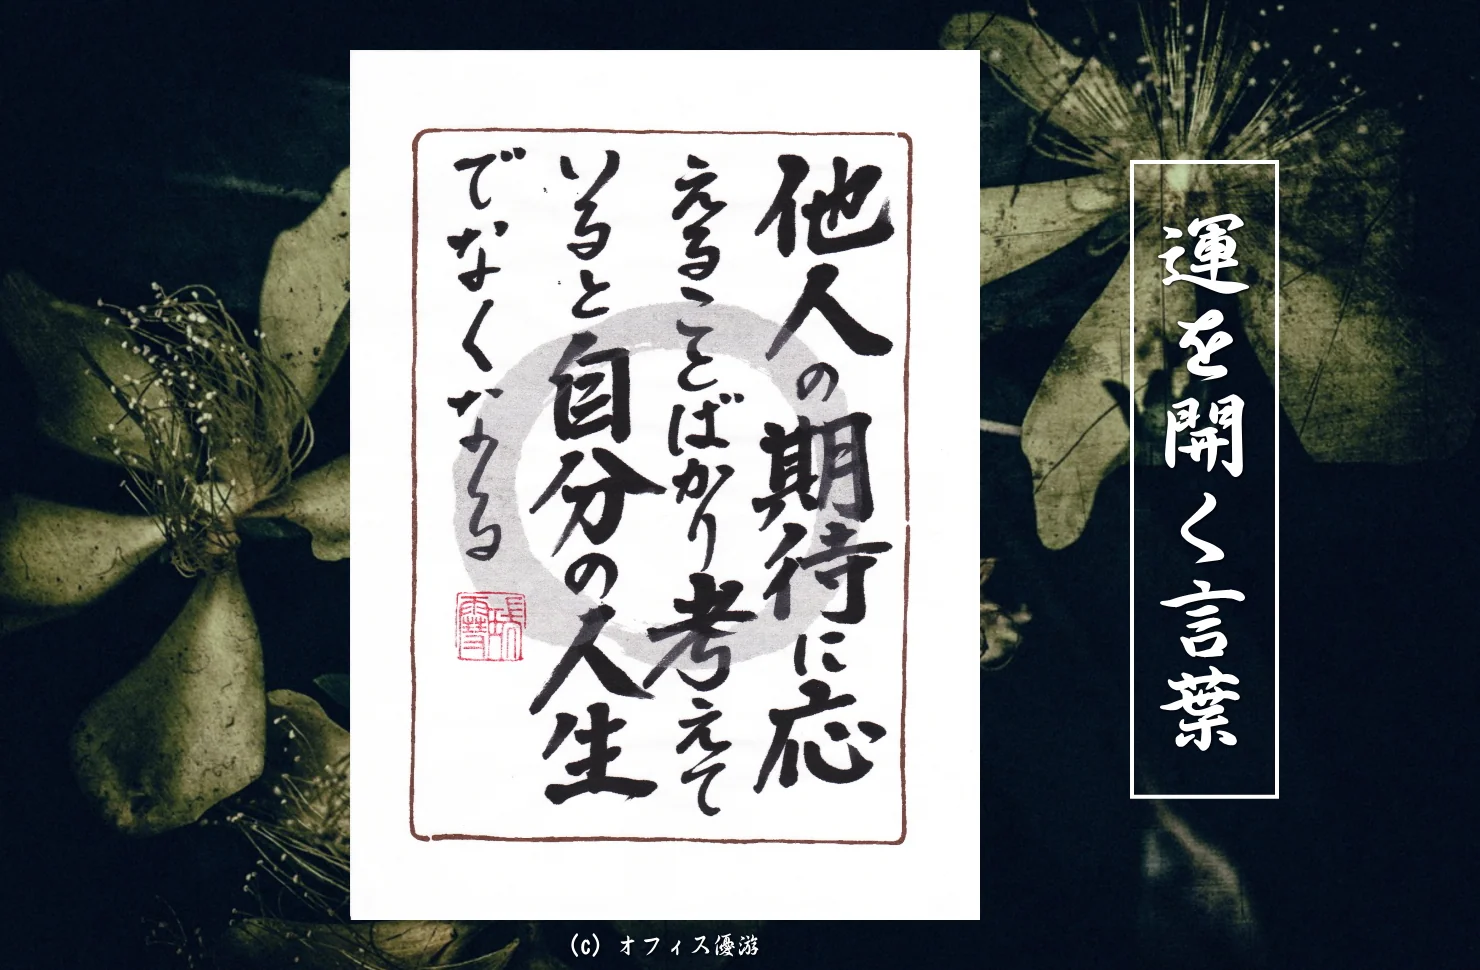 他人の期待に応
えることばかり考えて
いると自分の人生
でなくなる
運を開く言葉
(c) オフィス優游